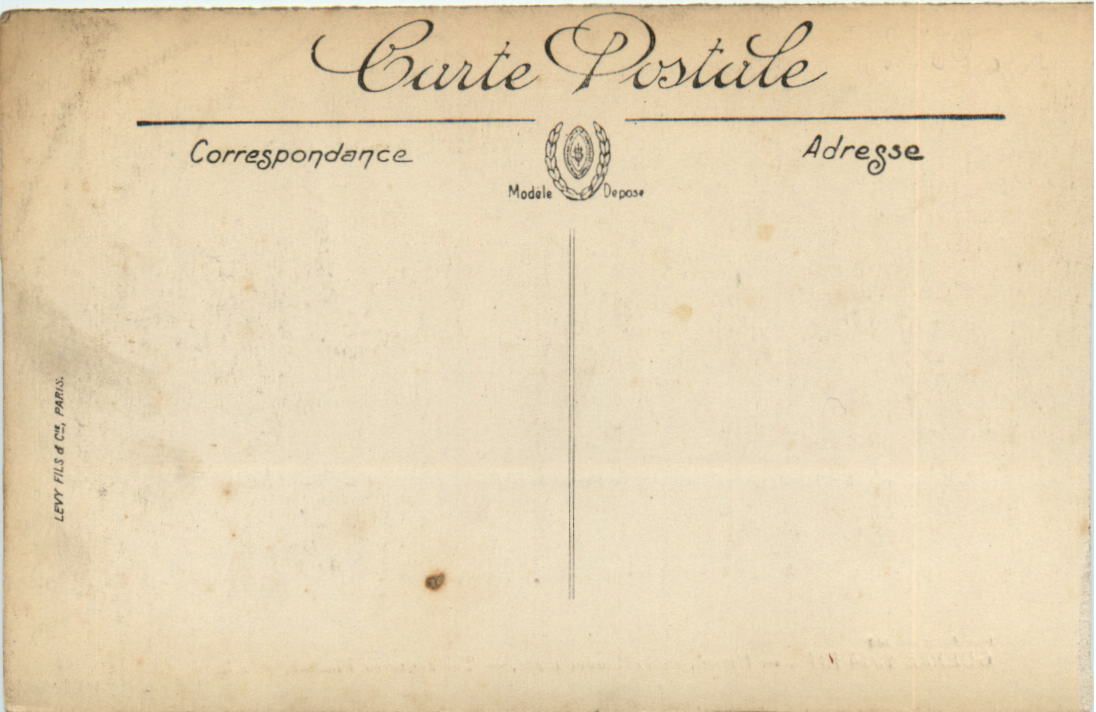 Carte Postale
Correspondance
Adresse
Modèle Deposé
LEVY FILS & Cie, PARIS.